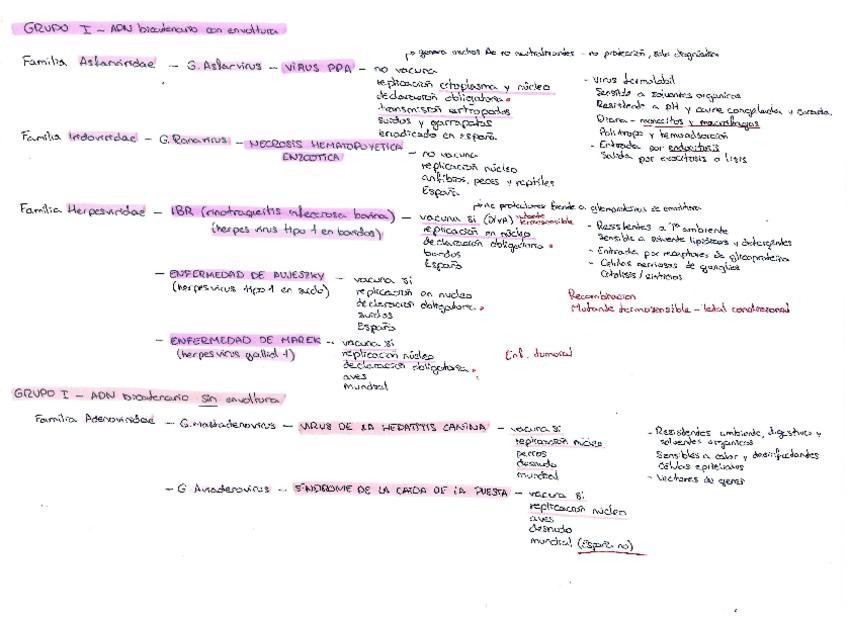 GRUPO I - ADN bicatenario con envoltura
genera muchos Ac no neutralizantes - no protección, solo diagnóstico
Familia Asfarviridae - G. Asfarvirus - VIRUS PPA - no vacuna
replicación ectoplasma y núcleo
declaración obligatoria
transmisión artropodos
suidos y garrapatas
erradicado en España.
- Virus termolabil
Sensible a solventes orgánicos
Resistente a pH y carne congelada y curada.
Diana - monocitos y macrofagos
Politropo y hemoadsorción
- Entrada por endocitosis
Salida por exocitosis o lisis
Familia Iridoviridae - G. Ranavirus - NECROSIS HEMATOPOYETICA
ENZOOTICA
- no vacuna
replicación núcleo
anfibios, peces y reptiles
España
Familia Herpesviridae - IBR (rinotraqueitis infecciosa bovina)
(herpes virus tipo 1 en bóvidos)
inm. protectores frente a glicoproteinas de envoltura
- vacuna si (DIVA) mutante termosensible
replicación en núcleo
declaración obligatoria
bovidos
España
- Resistentes a Tª ambiente
Sensible a solvente lipídicos y detergentes
- Entrada por receptores de glicoproteína
- Células nerviosas de ganglios
Citolisis / sinticios
- ENFERMEDAD DE AUJESZKY
(herpesvirus tipo 1 en suido)
- vacuna si
replicación en nucleo
declaración obligatoria
suidos
España
Recombinación
Mutante termosensible - letal condicional
- ENFERMEDAD DE MAREK
(herpes virus gallid 1)
- vacuna si
replicación núcleo
declaración obligatoria
aves
mundial
Enf. tumoral
GRUPO I - ADN bicatenario sin envoltura
Familia Adenoviridae - G. Mastadenovirus - VIRUS DE LA HEPATITIS CANINA - vacuna si
replicación núcleo
perros
desnudo
mundial
- Resistentes ambiente, digestivo y
solventes orgánicos
Sensibles a calor y desinfectantes
Células epiteliales
- Vectores de genes
- G Aviadenovirus - SÍNDROME DE LA CAIDA DE LA PUESTA - vacuna si
replicación núcleo
aves
desnudo
mundial (España no)